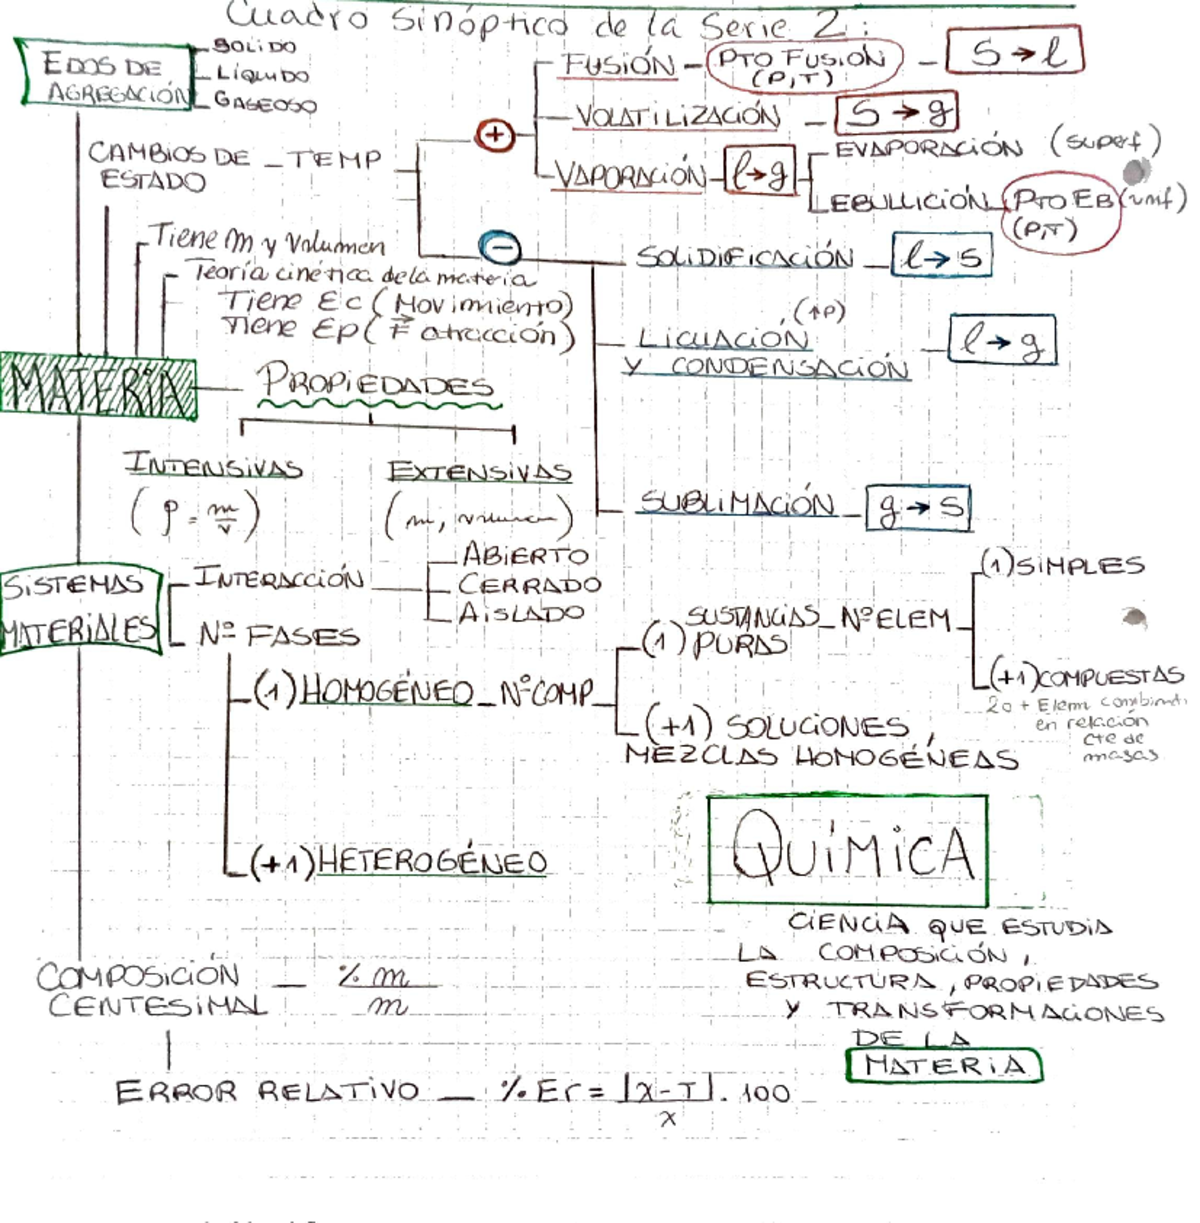 Cuadro Sinóptico de la Serie 2:
EDOS DE
AGREGACIÓN
SÓLIDO
LÍQUIDO
GASEOSO
CAMBIOS DE _ TEMP
ESTADO
+
FUSIÓN - PTO FUSIÓN - S → l
(P,T)
VOLATILIZACIÓN - S → g
VAPORACIÓN - l → g
EVAPORACIÓN (superf)
EBULLICIÓN PTO EB
(P,T)
-
SOLIDIFICACIÓN - l → s
LICUACIÓN, (↑P)
Y CONDENSACIÓN - l → g
SUBLIMACIÓN - g → s
Tiene m y Volumen
Teoría cinética de la materia
Tiene Ec (Movimiento)
Tiene Ep (F atracción)
MATERIA
PROPIEDADES
INTENSIVAS
(ρ = m/v)
EXTENSIVAS
(m, volumen)
SISTEMAS
MATERIALES
INTERACCIÓN
ABIERTO
CERRADO
AISLADO
Nº FASES
(1) HOMOGÉNEO _ Nº COMP
(1) SUSTANCIAS _ Nº ELEM
PURAS
(1) SIMPLES
(+1) COMPUESTAS
2 o + Elem
en relación
cte de
masas
(+1) SOLUCIONES,
MEZCLAS HOMOGÉNEAS
(+1) HETEROGÉNEO
QUÍMICA
CIENCIA QUE ESTUDIA
LA COMPOSICIÓN,
ESTRUCTURA, PROPIEDADES
Y TRANSFORMACIONES
DE LA
MATERIA
COMPOSICIÓN
CENTESIMAL _ % m/m
ERROR RELATIVO _ % Er = |X-T| . 100
X